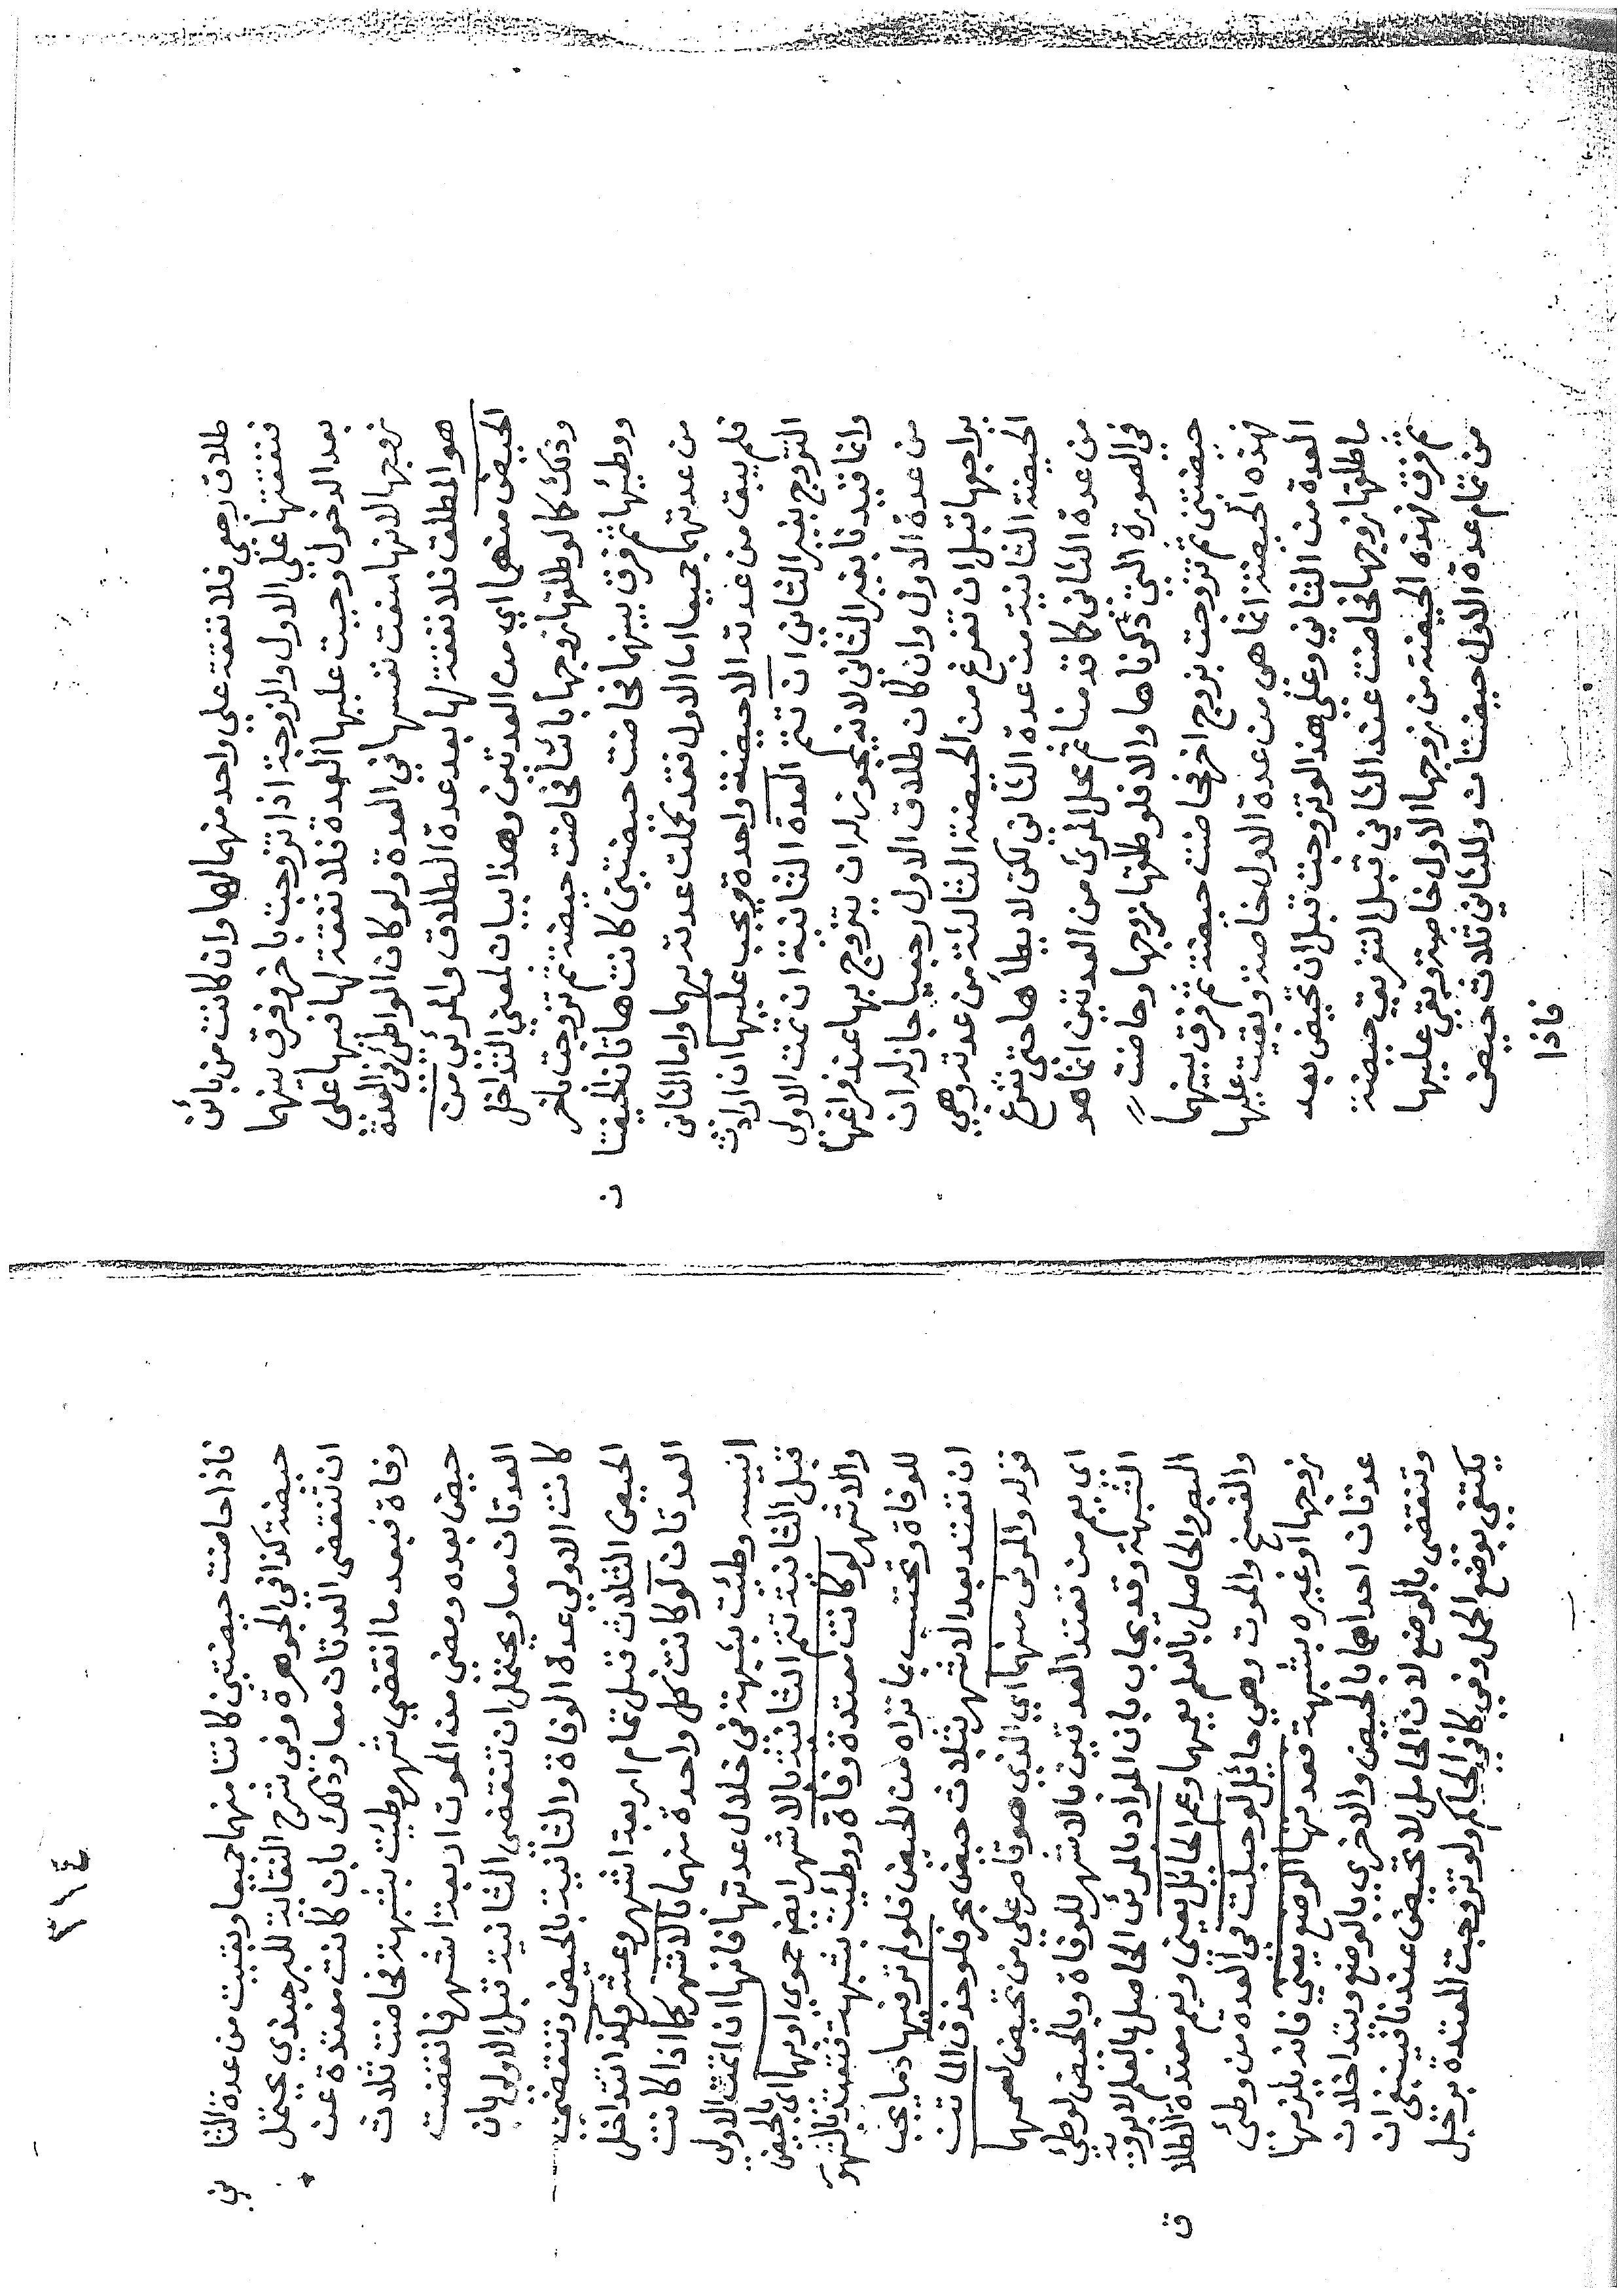 طلاق رجعي فلا نفقة علي واحد منهما لها وان كانت من بائن
فنفقتها علي الاول والزوجة اذا تزوجت باخر وفرق بينهما
بعد الدخول وجبت عليها العدة فلا نفقة لها فيها على
زوجها لانها منعت نفسها في العدة ولو كان الواطئ في العدة
هو المطلق فلا نفقة لها بعد عدة الطلاق والمرئي من
الحيض منهما اي من العدتين وهذا بيان لمعني التداخل
وذلك كما لو طلقها زوجها بائنا فحاضت حيضة ثم تزوجت باخر
ووطئها ثم فرق بينهما فحاضت حيضتين كانت هاتان الحيضتا
ن
من عدتهما جميعا اما الاول فقد تكملت عدته بهما واما الثاني
فلم يبق من عدته الا حيضة واحدة ويجب عليها ان ارادت
التزوج بغير الثاني ان تتم العدة الثانية ان تمت الاولى
وانما قيدنا بغير الثاني لانه يجوز له ان يتزوج بها عند فراغها
من عدة الاول وان كان طلاق الاول رجعيا جاز له ان
يراجعها قبل ان تفرغ من الحيضة الثالثة من عدته وهي
الحيضة الثانية من عدة الثاني لكن لا يطأها حتى تفرغ
من عدة الثاني كما قدمنا ثم محل المرئ من العدتين انما هو
في الصورة التي ذكرناها والا فلو طلقها زوجها وحاضت
حيضتين ثم تزوجت بزوج اخر فحاضت حيضة ثم فرق بينهما
فهذه الحيضة انما هي من عدة الاول خاصة وبقيت عليها
العدة من الثاني وعلي هذا لو تزوجت قبل ان تحيض بعد
ما طلقها زوجها فحاضت عند الثاني قبل التفريق حيضة
ثم فرق فهذه الحيضة من زوجها الاول خاصة وبقي عليها
من تمام عدة الاول حيضتان وللثاني ثلاث حيض
فاذا
٣١٤
فاذا حاضت حيضتين كانتا منهما جميعا وبقيت من عدة الثا
ني
حيضة كذا في الجوهرة وفي شرح النقاية للبرجندي يحتمل
ان تنقضي العدتان معا وذلك بان كانت معتدة عن
وفاة فبعد ما انقضي شهر وطئت بشبهة فحاضت ثلاث
حيض بعده ومضي من الموت اربعة اشهر فانقضت
العدتان معا ويحتمل ان تنقضي الثانية قبل الاولى بان
كانت الاولي عدة الوفاة والثانية بالحيض وتنقضي
الحيض الثلاث قبل تمام اربعة اشهر وعشر وكذا تتداخل
العدتان لو كانت كل واحدة منهما بالاشهر كما اذا كانت
ايسه وطئت بشبهة في خلال عدتها فانها ان اتمت الاولى
قبل الثانية تتم الثانية بالاشهر ايض حموي او بهما اي بالحيض
والاشهر لو كانت معتدة وفاة ووطئت بشبهة فتعتد بالشهور
للوفاة وتحتسب بما تراه من الحيض فلو لم تر فيها دما يجب
ان تعتد بعد الاشهر بثلاث حيض بحر فلو حذف الماتن
قوله والمرئى منهما اي الذي هو قاصر علي من تحيض لعمهما
اى يعم من تعتد العدتين بالاشهر للوفاة وبالحيض لوطئ
الشبهة وقد يجاب بان المراد بالمرئى الحاصل بالعلم لا برؤية
البصر والحاصل بالعلم يعمهما وعم الحائل يعني ويعم معتدة الطلا
ق
والفسخ والموت وهي حائل لو حبلت في العدة من وطئ
زوجها او غيره بشبهة فعدتها الوضع يعني فانه يلزمها
عدتان احداهما بالحيض والاخري بالوضع وتتداخلان
وتنقضي بالوضع لان الحامل لا تحيض عندنا فينبغي ان
يكتفي بوضع الحمل وفي كافي الحاكم ولو تزوجت المعتدة برجل